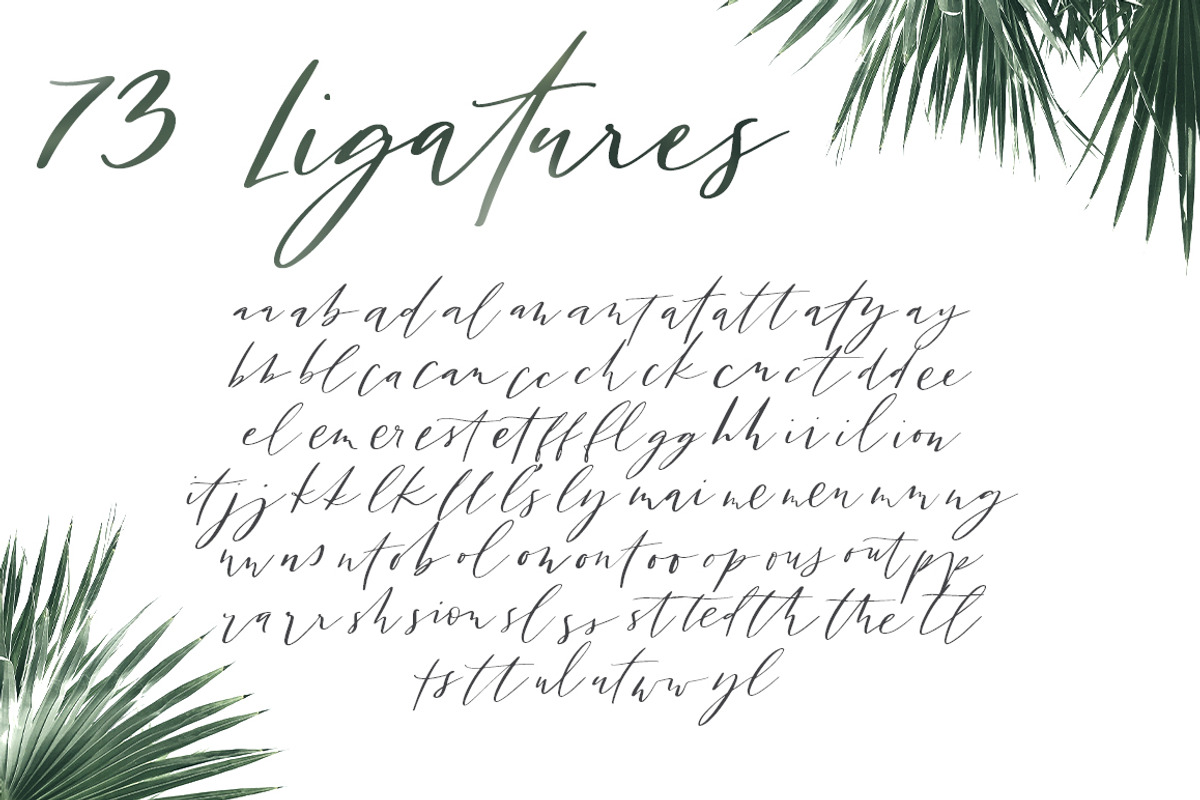 73 Ligatures
aa ab ad al an ant at att aty ay
bb bl ca can cc ch ck cn ct dd ee
el em er est et ff fl gg hh ii il ion
it jj kk lk ll ls ly mai me men mm ng
nn ns nt ob ol on ont oo op ous out pp
ra rr sh sion sl ss st ted th the tl
ts tt ul ut ww yl